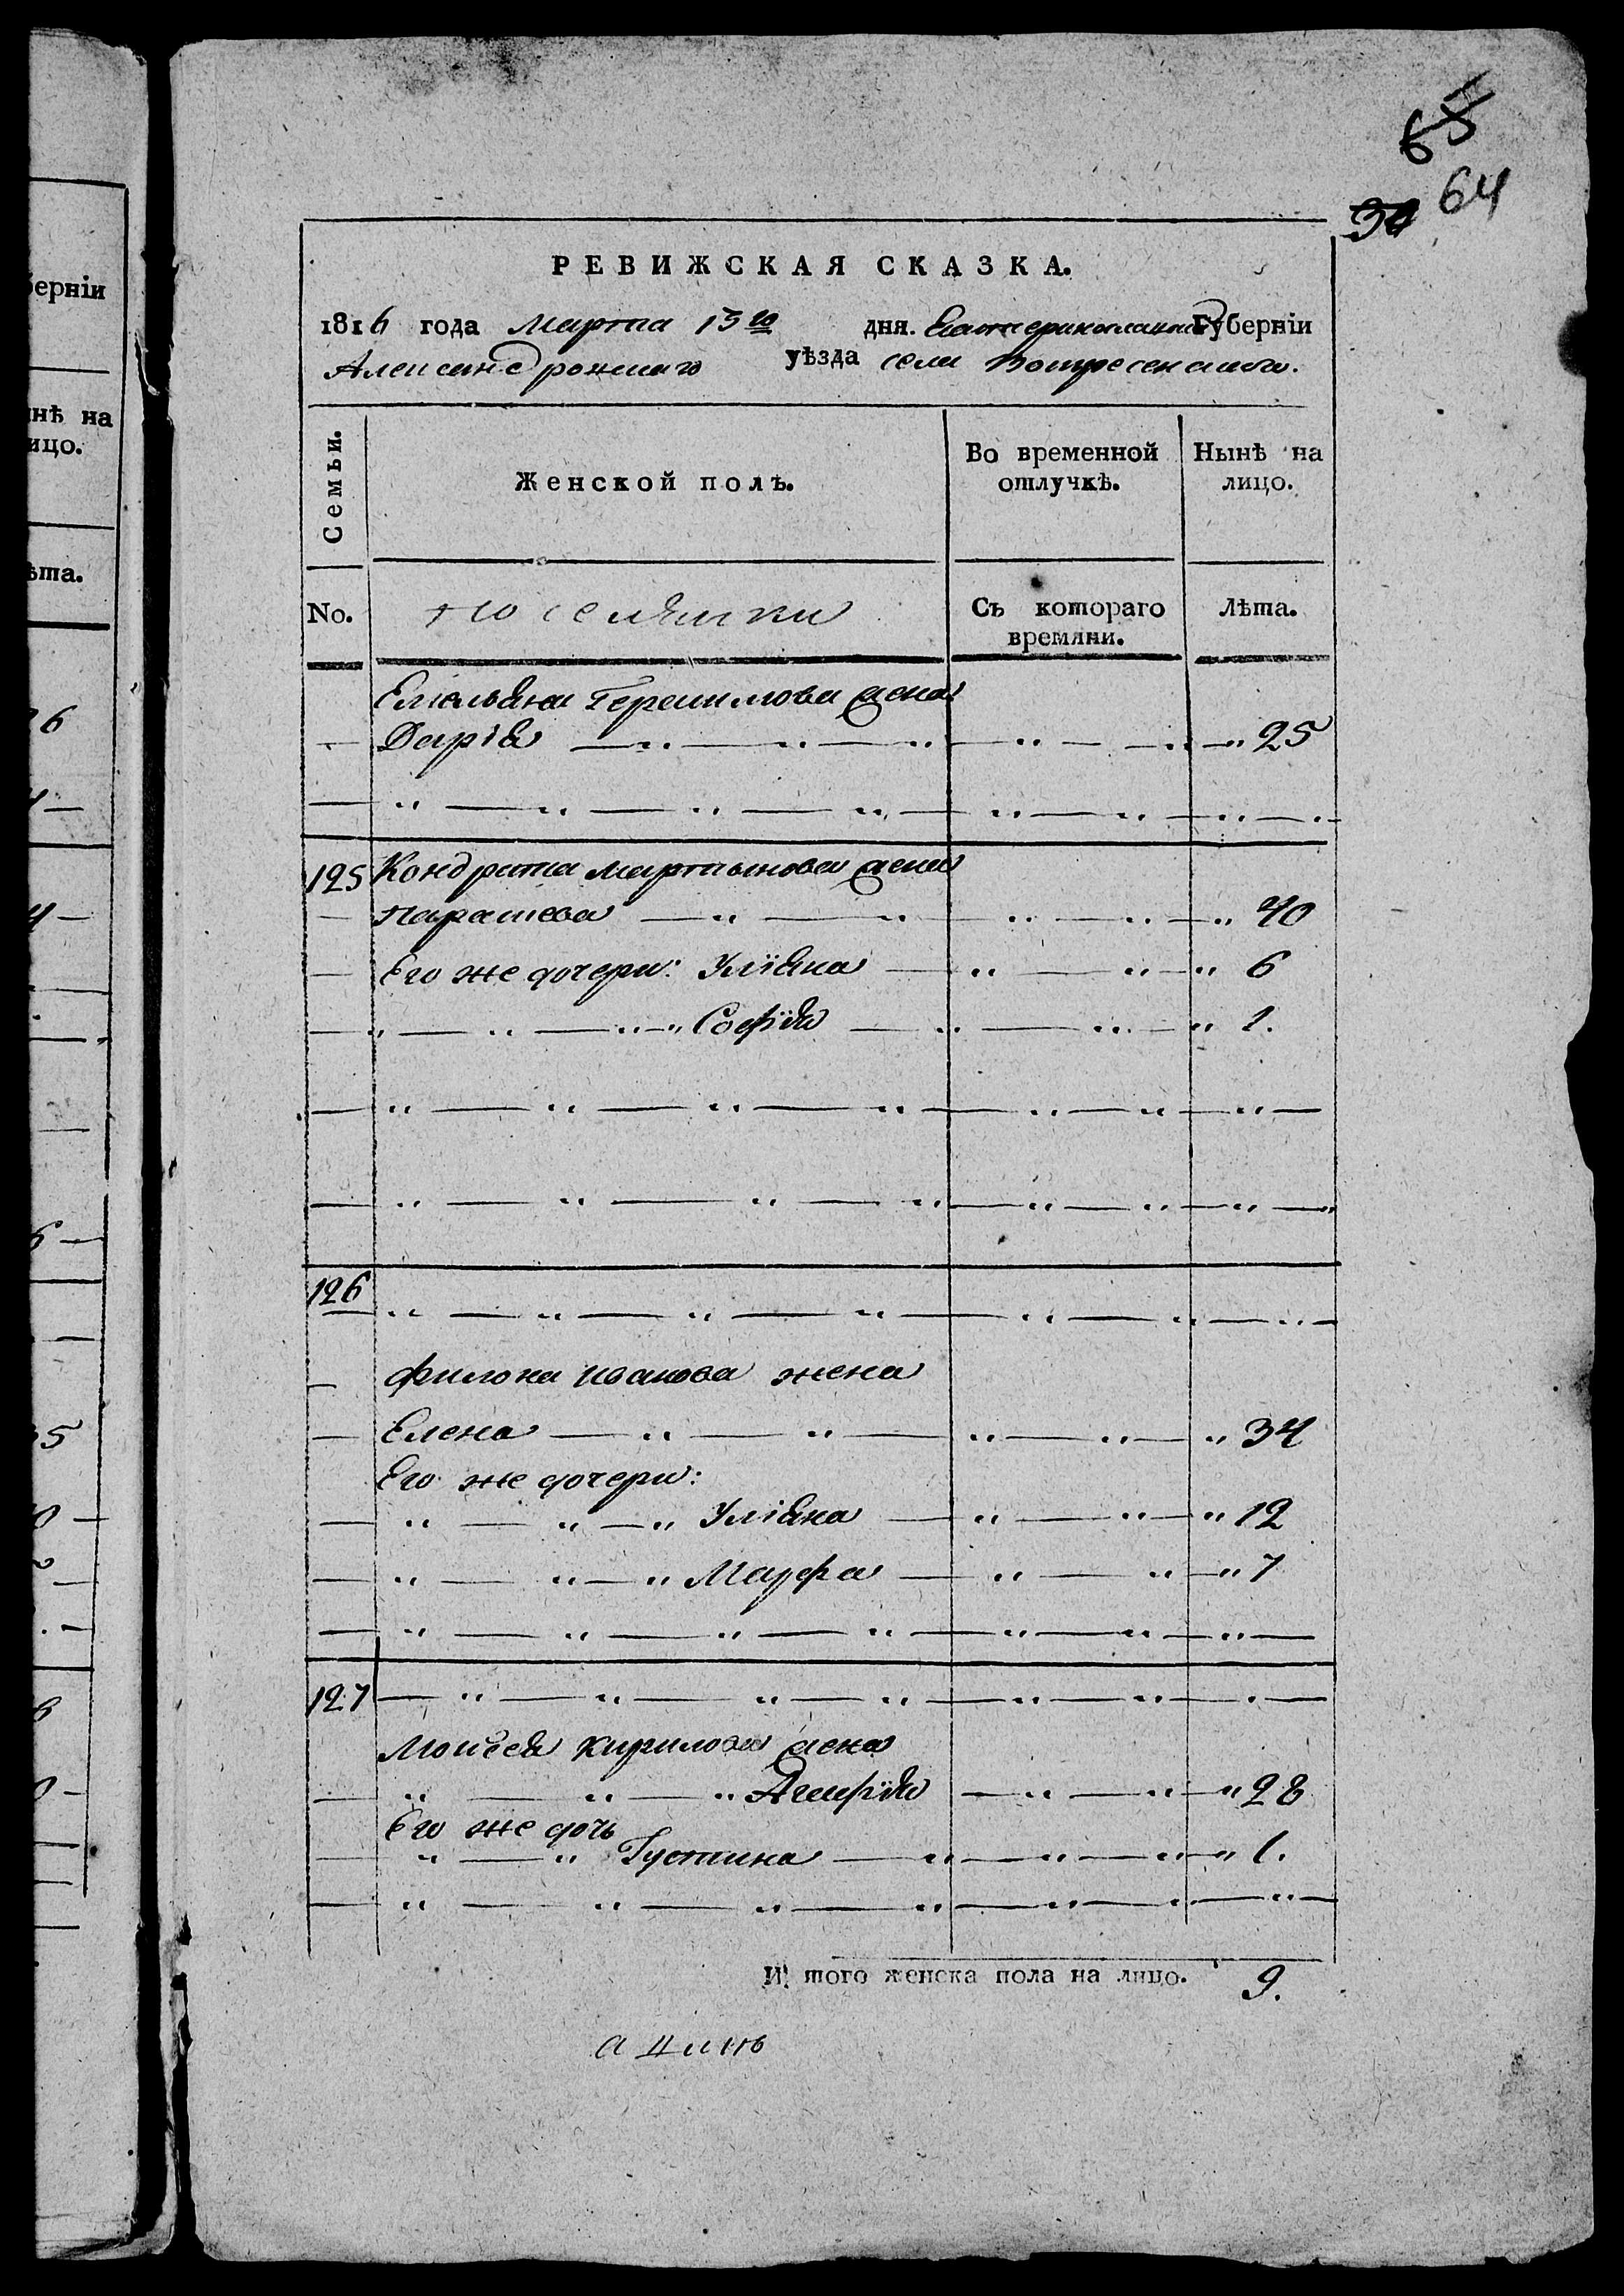 65
34 64
РЕВИЖСКАЯ СКАЗКА.
1816 года Марта 15го дня. Екатеринославской Губерніи
Александровскаго уѣзда села Воскресенскаго.
Семьи. Женской полъ. Во временной отлучкѣ. Нынѣ на лицо.
No. Поселянки Съ котораго времяни. Лѣта.
Емельяна Герасимова жена
Дарія 25
125 Кондрата Мартынова жена
Парасковa 40
Его же дочери: Уліяна 6
Софія 1.
126
Филона Иванова жена
Елена 34
Его же дочери:
Уліяна 12
Марфа 7
127
Моисея Кирилова жена
Агафія 28
Его же дочь
Густина 1.
И того женска пола на лицо. 9.
берніи
нѣ на
ицо.
ѣта.